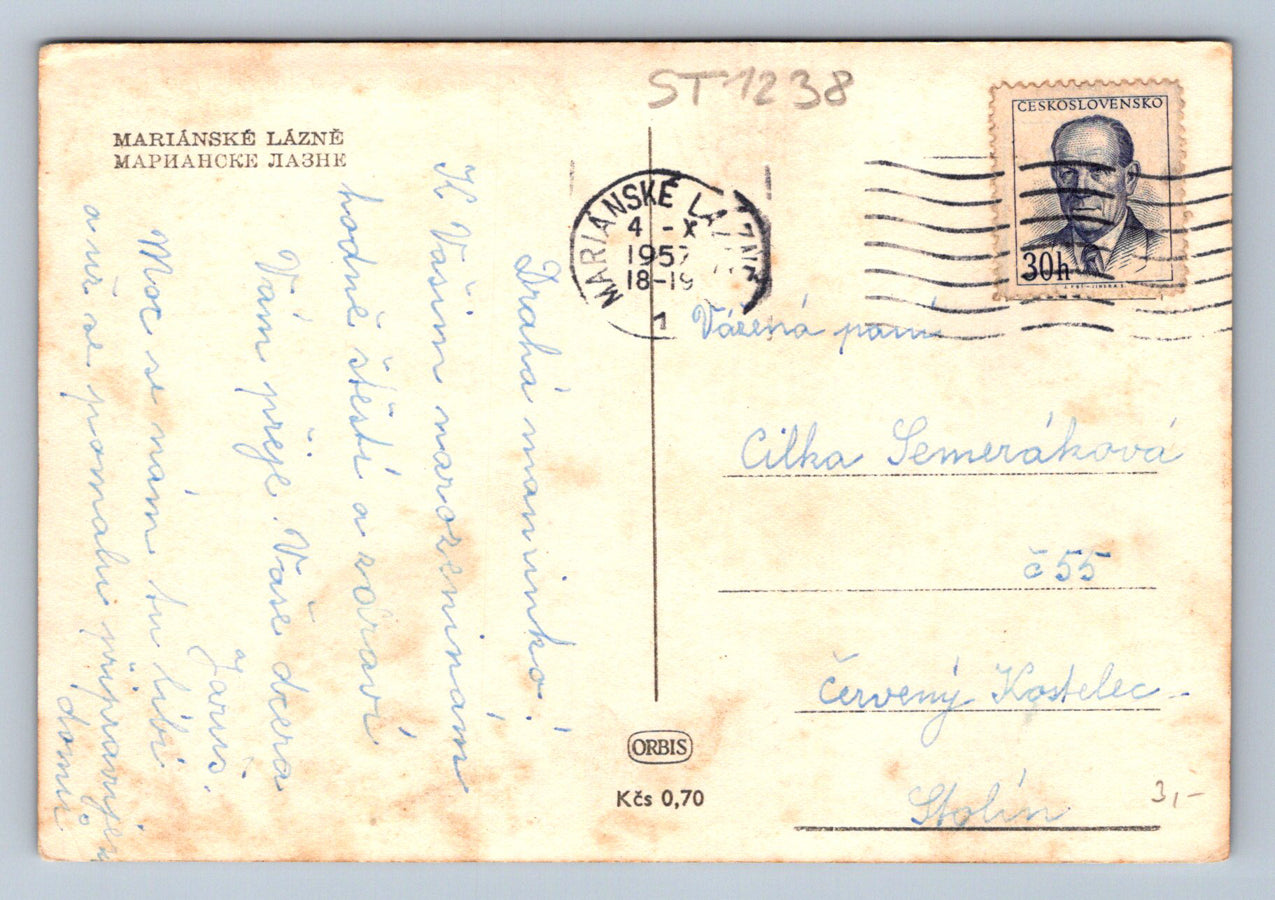 ST 1238
MARIÁNSKÉ LÁZNĚ
МАРИАНСКЕ ЛАЗНЕ
ČESKOSLOVENSKO
30h
MARIÁNSKÉ LÁZNĚ
4 -X
1957
18-19
1
Drahá maminko!
K Vašim narozeninám
hodně štěstí a zdraví
Vám přeje Vaše dcera
a Jarus.
Moc se nám tu líbí
a už se pomalu připravujem
domů
Vázená paní
Cilka Semeráková
č 55
Červený Kostelec -
Stolín
ORBIS
Kčs 0,70
3,-